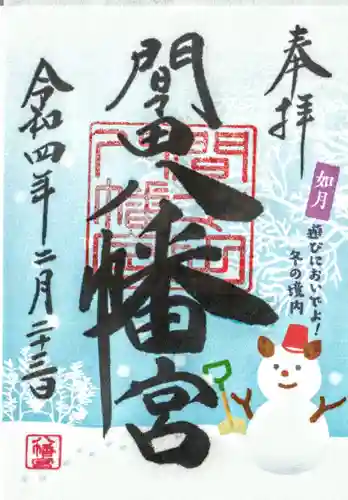 奉拝
如月
遊びにおいでよ!
冬の境内
間々田八幡宮
令和四年二月二十三日